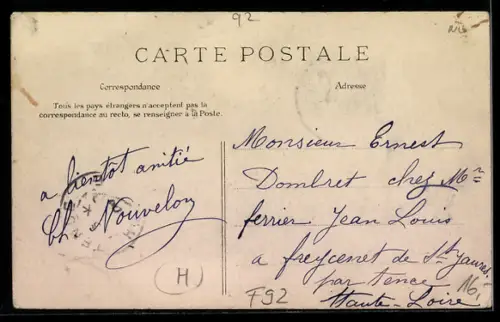 92
CARTE POSTALE
Correspondance
Adresse
Tous les pays étrangers n'acceptent pas la
correspondance au recto, se renseigner à la Poste.
a bientot amitié
Ch Nouvelon
H
Monsieur Ernest
Dombret chez Mr
ferrier Jean Louis
a freycenet de St Jeures
par tence
Haute-Loire
F92
16